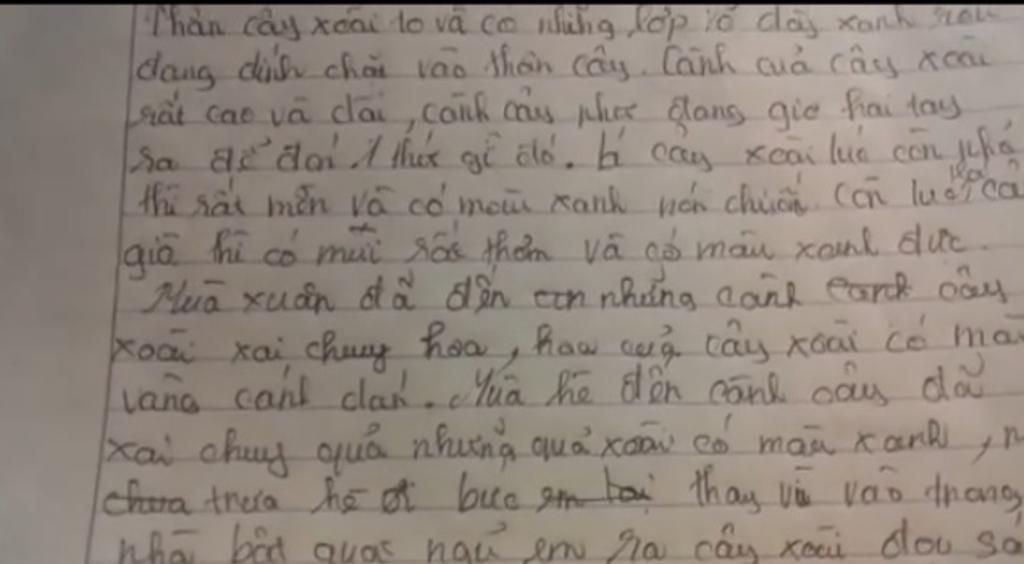 Thân cây xoài to và có những lớp vỏ dày xanh
đang dính chặt vào thân cây. Cành cuả cây xoài
rất cao và dài, cành cây như đang giơ hai tay
ra để đoí thứ gì đó. Lá cây xoài lúc còn
thì rất mền và có màu xanh nón chuối. Còn lúc lá
già thì có muì rất thơm và có màu xanh đục.
Muà xuân đã đến những cành cây
xoài xai chuy hoa, hoa cuả cây xoài có
vàng canh dan. Muà hè đến cành cây đã
xai chuy quả những quả xoài có màu xanh,
trưa hè oi bức thay vì vào trong
nhà bật quạt ngủ em ra cây xoài